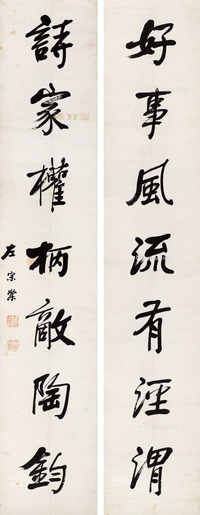 好事風流有涇渭
詩家權柄敵陶鈞
左宗棠